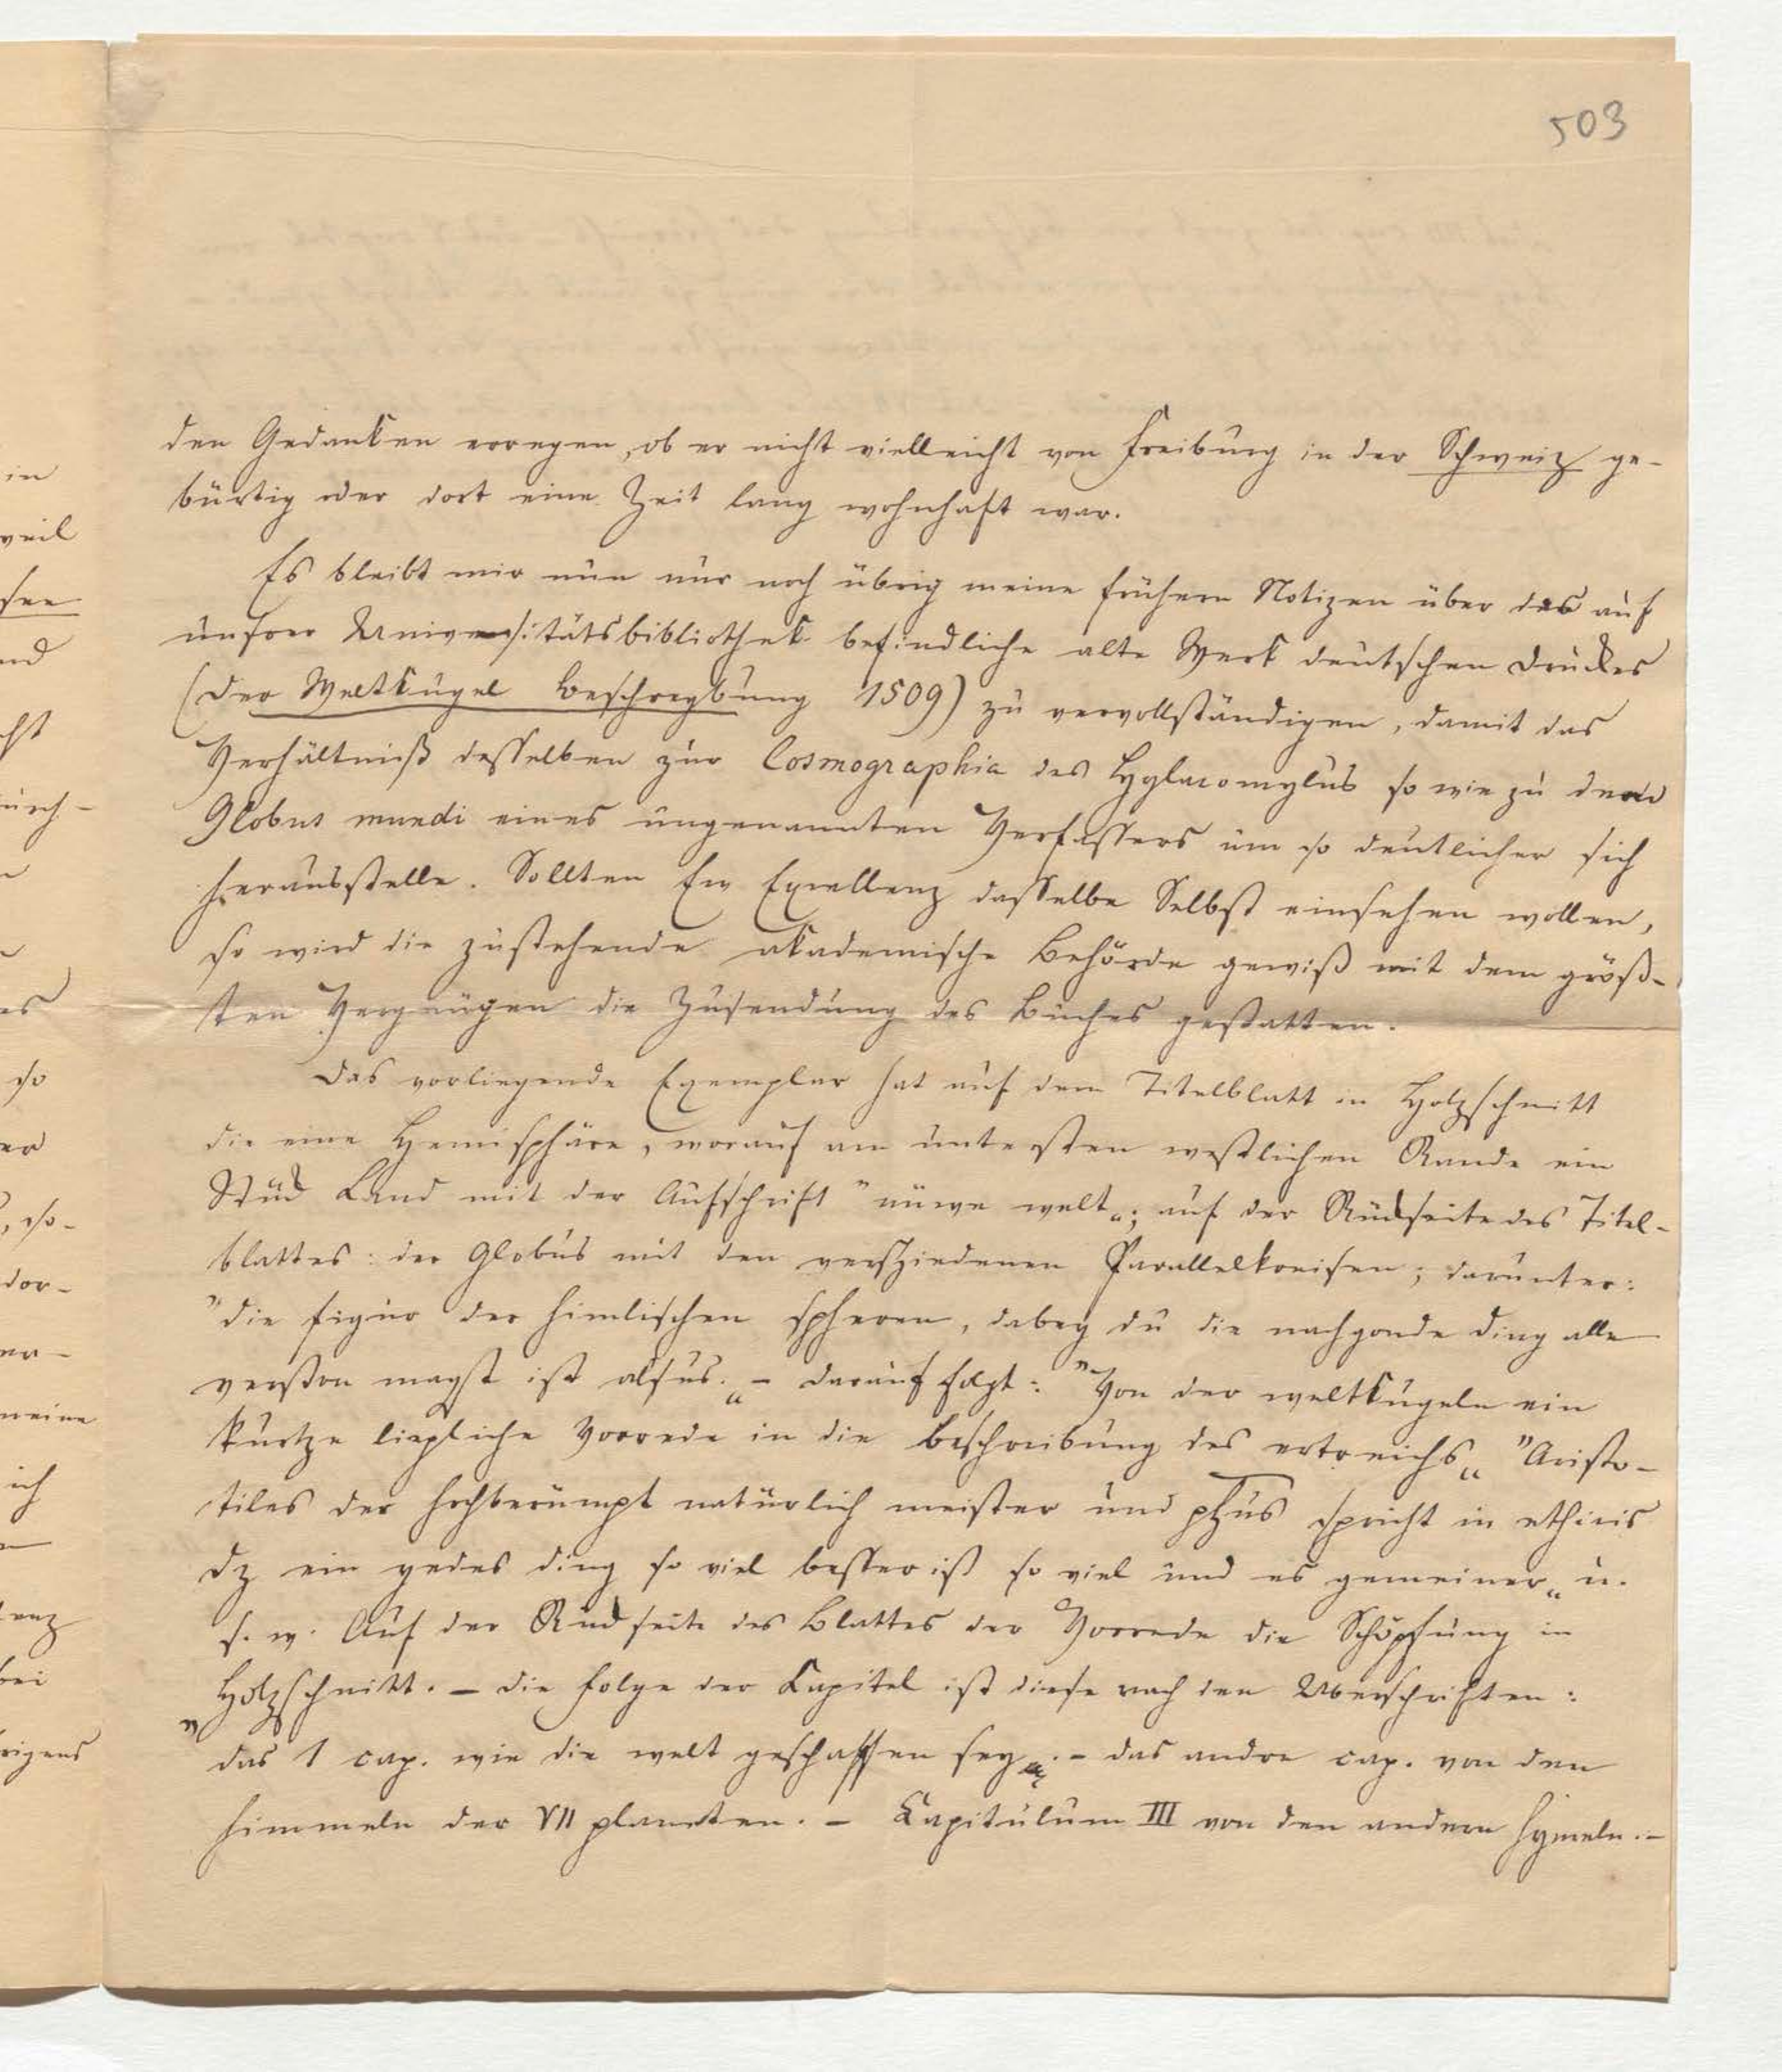 503
den Gedanken erregen, ob er nicht vielleicht von Freiburg in der Schweiz ge-
bürtig oder dort eine Zeit lang wohnhaft war.
Es bleibt mir nun nur noch übrig meine frühern Notizen über das auf
unsrer Universitätsbibliothek befindliche alte Werk deutschen Druckes
(Der Weltkugel Beschreybung 1509) zu vervollständigen, damit das
Verhältniß desselben zur Cosmographia des Hylacomylus so wie zu dem
Globus mundi eines ungenannten Verfassers um so deutlicher sich
herausstelle. Sollten Ew Excellenz dasselbe Selbst einsehen wollen,
so wird die zustehende akademische Behörde gewiß mit dem größ-
ten Vergnügen die Zusendung des Buches gestatten.
Das vorliegende Exemplar hat auf dem Titelblatt in Holzschnitt
die eine Hemisphäre, worauf am untersten westlichen Rande ein
Stück Land mit der Aufschrift "nüwe welt„; auf der Rückseite des Titel-
blattes: der Globus mit den verschiedenen Parallelkreisen; darunter:
"die figur der himlischen spheren, dabey du die nachgonde ding alle
verston magst ist alsus.„ - darauf folgt: "Von der weltkugeln ein
kurtze liepliche Vorrede in die beschreibung des ertreichs„ "Aristo-
tiles der hochberümpt natürlich meister und phus spricht in ethicis
dz ein yedes ding so viel besser ist so viel und es gemeiner„ u.
s. w. Auf der Rückseite des Blattes der Vorrede die Schöpfung in
Holzschnitt. - Die Folge der Kapitel ist diese nach den Überschriften:
"das 1 cap. wie die welt geschaffen sey. - das andre cap. von den
himmeln der VII planeten. - Kapitulum III von den andern hymeln. -
in
weil
see
nd
cht
durch-
es
so
er
, so-
dor-
er-
meine
ich
lenz
bei
rigens